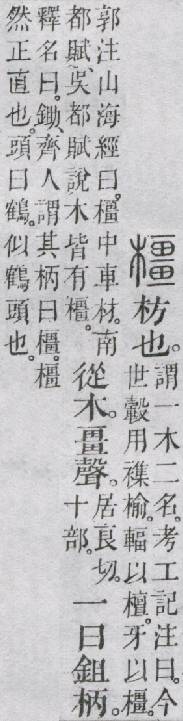 橿枋也。謂一木二名。考工記注曰。今
世轂用襍榆。輻以檀。牙以橿。
郭注山海經曰。橿中車材。南
都賦、吳都賦說木皆有橿。從木。畺聲。居良切。
十部。一曰鉏柄。
釋名曰。鋤、齊人謂其柄曰橿。橿
然正直也。頭曰鶴。似鶴頭也。